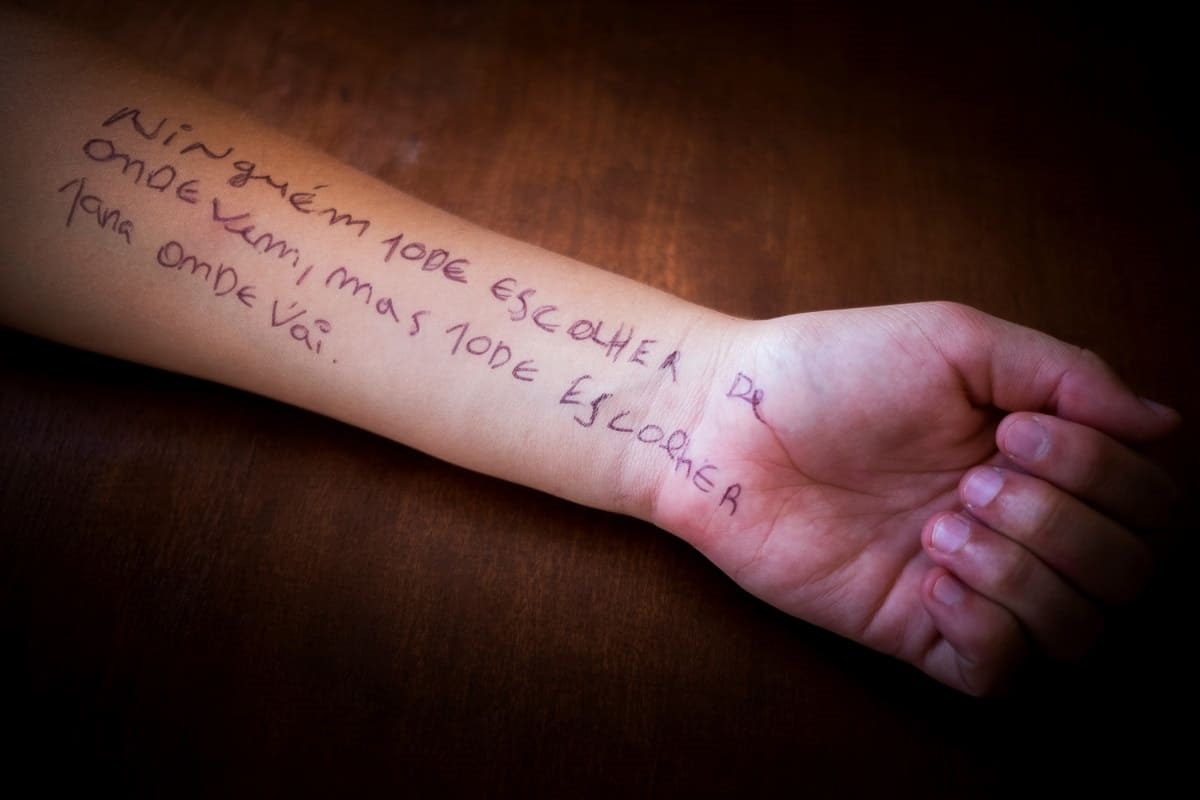 Ninguém PODE ESCOLHER De
ONDE vem, mas PODE ESCOlhER
Para ONDE Vai.